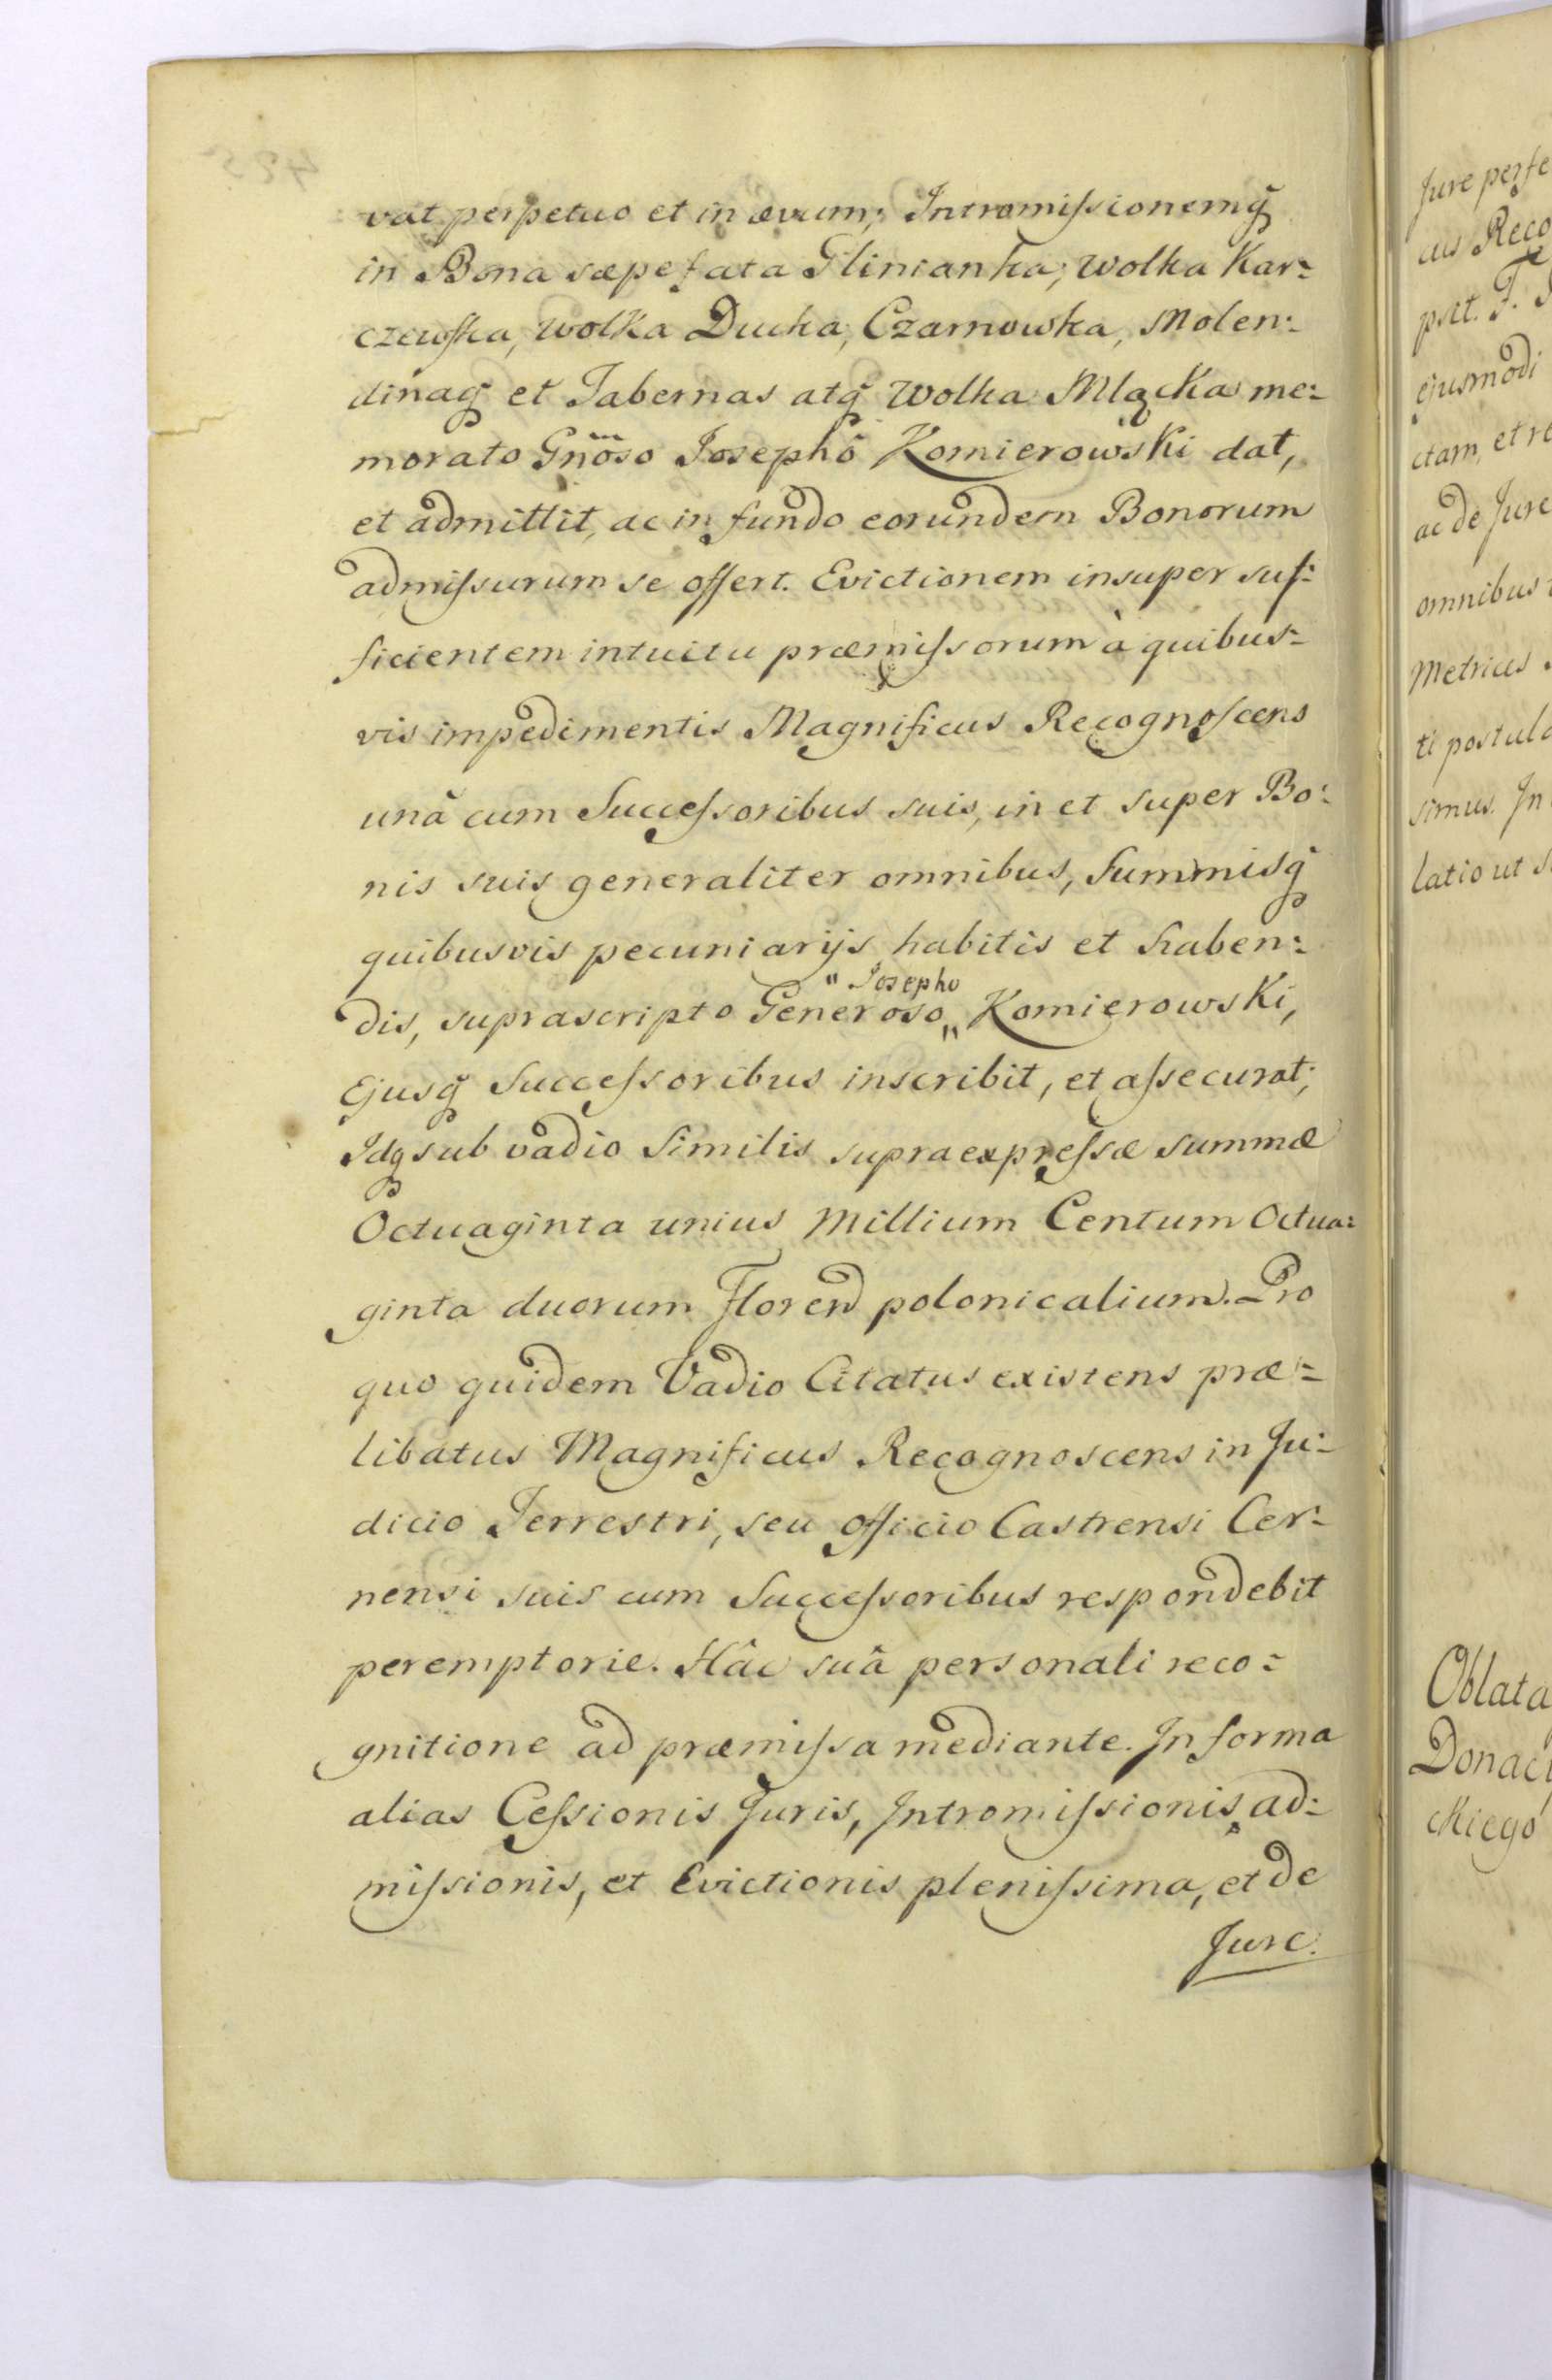 vat perpetuo et in ævum; Intromissionemq̃
in Bona sæpefata Glinianka, Wolka Kar-
czewska, Wolka Ducka, Czarnowka, Molen-
dinaq̃ et Tabernas atq̃ Wolka Mlącka me-
morato Gñoso Josephô Komierowski dat,
et admittit, ac in fundo eorundem Bonorum
admissurum se offert. Evictionem insuper suf-
ficientem intuitu præmissorum à quibus-
vis impedimentis Magnificus Recognoscens
unâ cum Successoribus suis, in et super Bo-
nis suis generaliter omnibus, Summisq̃
quibusvis pecuniarijs habitis et haben-
" Josepho
dis, suprascripto Generoso „ Komierowski,
Ejusq̃ Successoribus inscribit, et assecurat;
Idq̃ sub vadio similis supraexpressæ summæ
Octuaginta unius Millium Centum Octua-
ginta duorum Floren polonicalium. Pro
quo quidem Vadio Citatus existens præ-
libatus Magnificus Recognoscens in Ju-
dicio Terrestri, seu officio Castrensi Cer-
nensi suis cum Successoribus respondebit
peremptorie. Hâc suâ personali reco-
gnitione ad præmissa mediante. In forma
alias Cessionis Juris, Intromissionis, ad-
missionis, et Evictionis plenissima, et de
Jure.
Jure perfe
cus Reco
psct. F.
ejusmodi
ctam, et re
ac de Jure
omnibus
Metrices
ti postula
simus. In
latio ut s
Oblata
Donac
ckiego